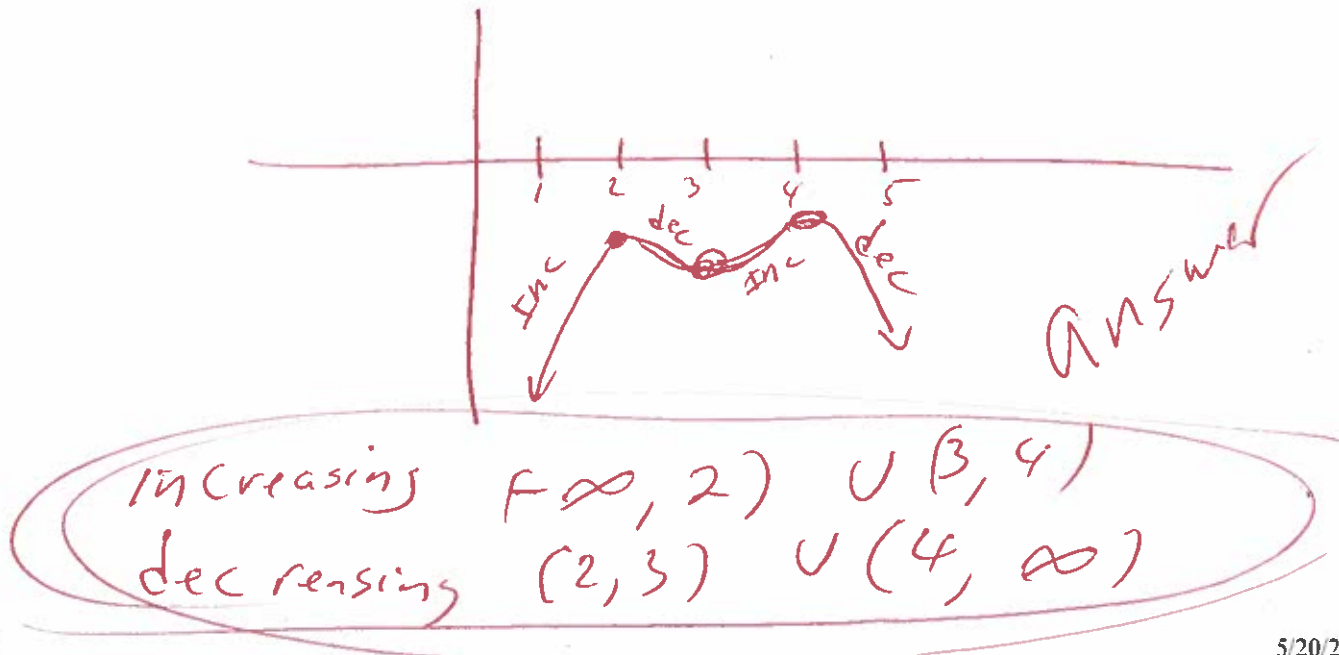 1 2 3 4 5
Inc dec Inc dec
answer
increasing (-∞, 2) ∪ (3, 4)
decreasing (2, 3) ∪ (4, ∞)
5/20/2